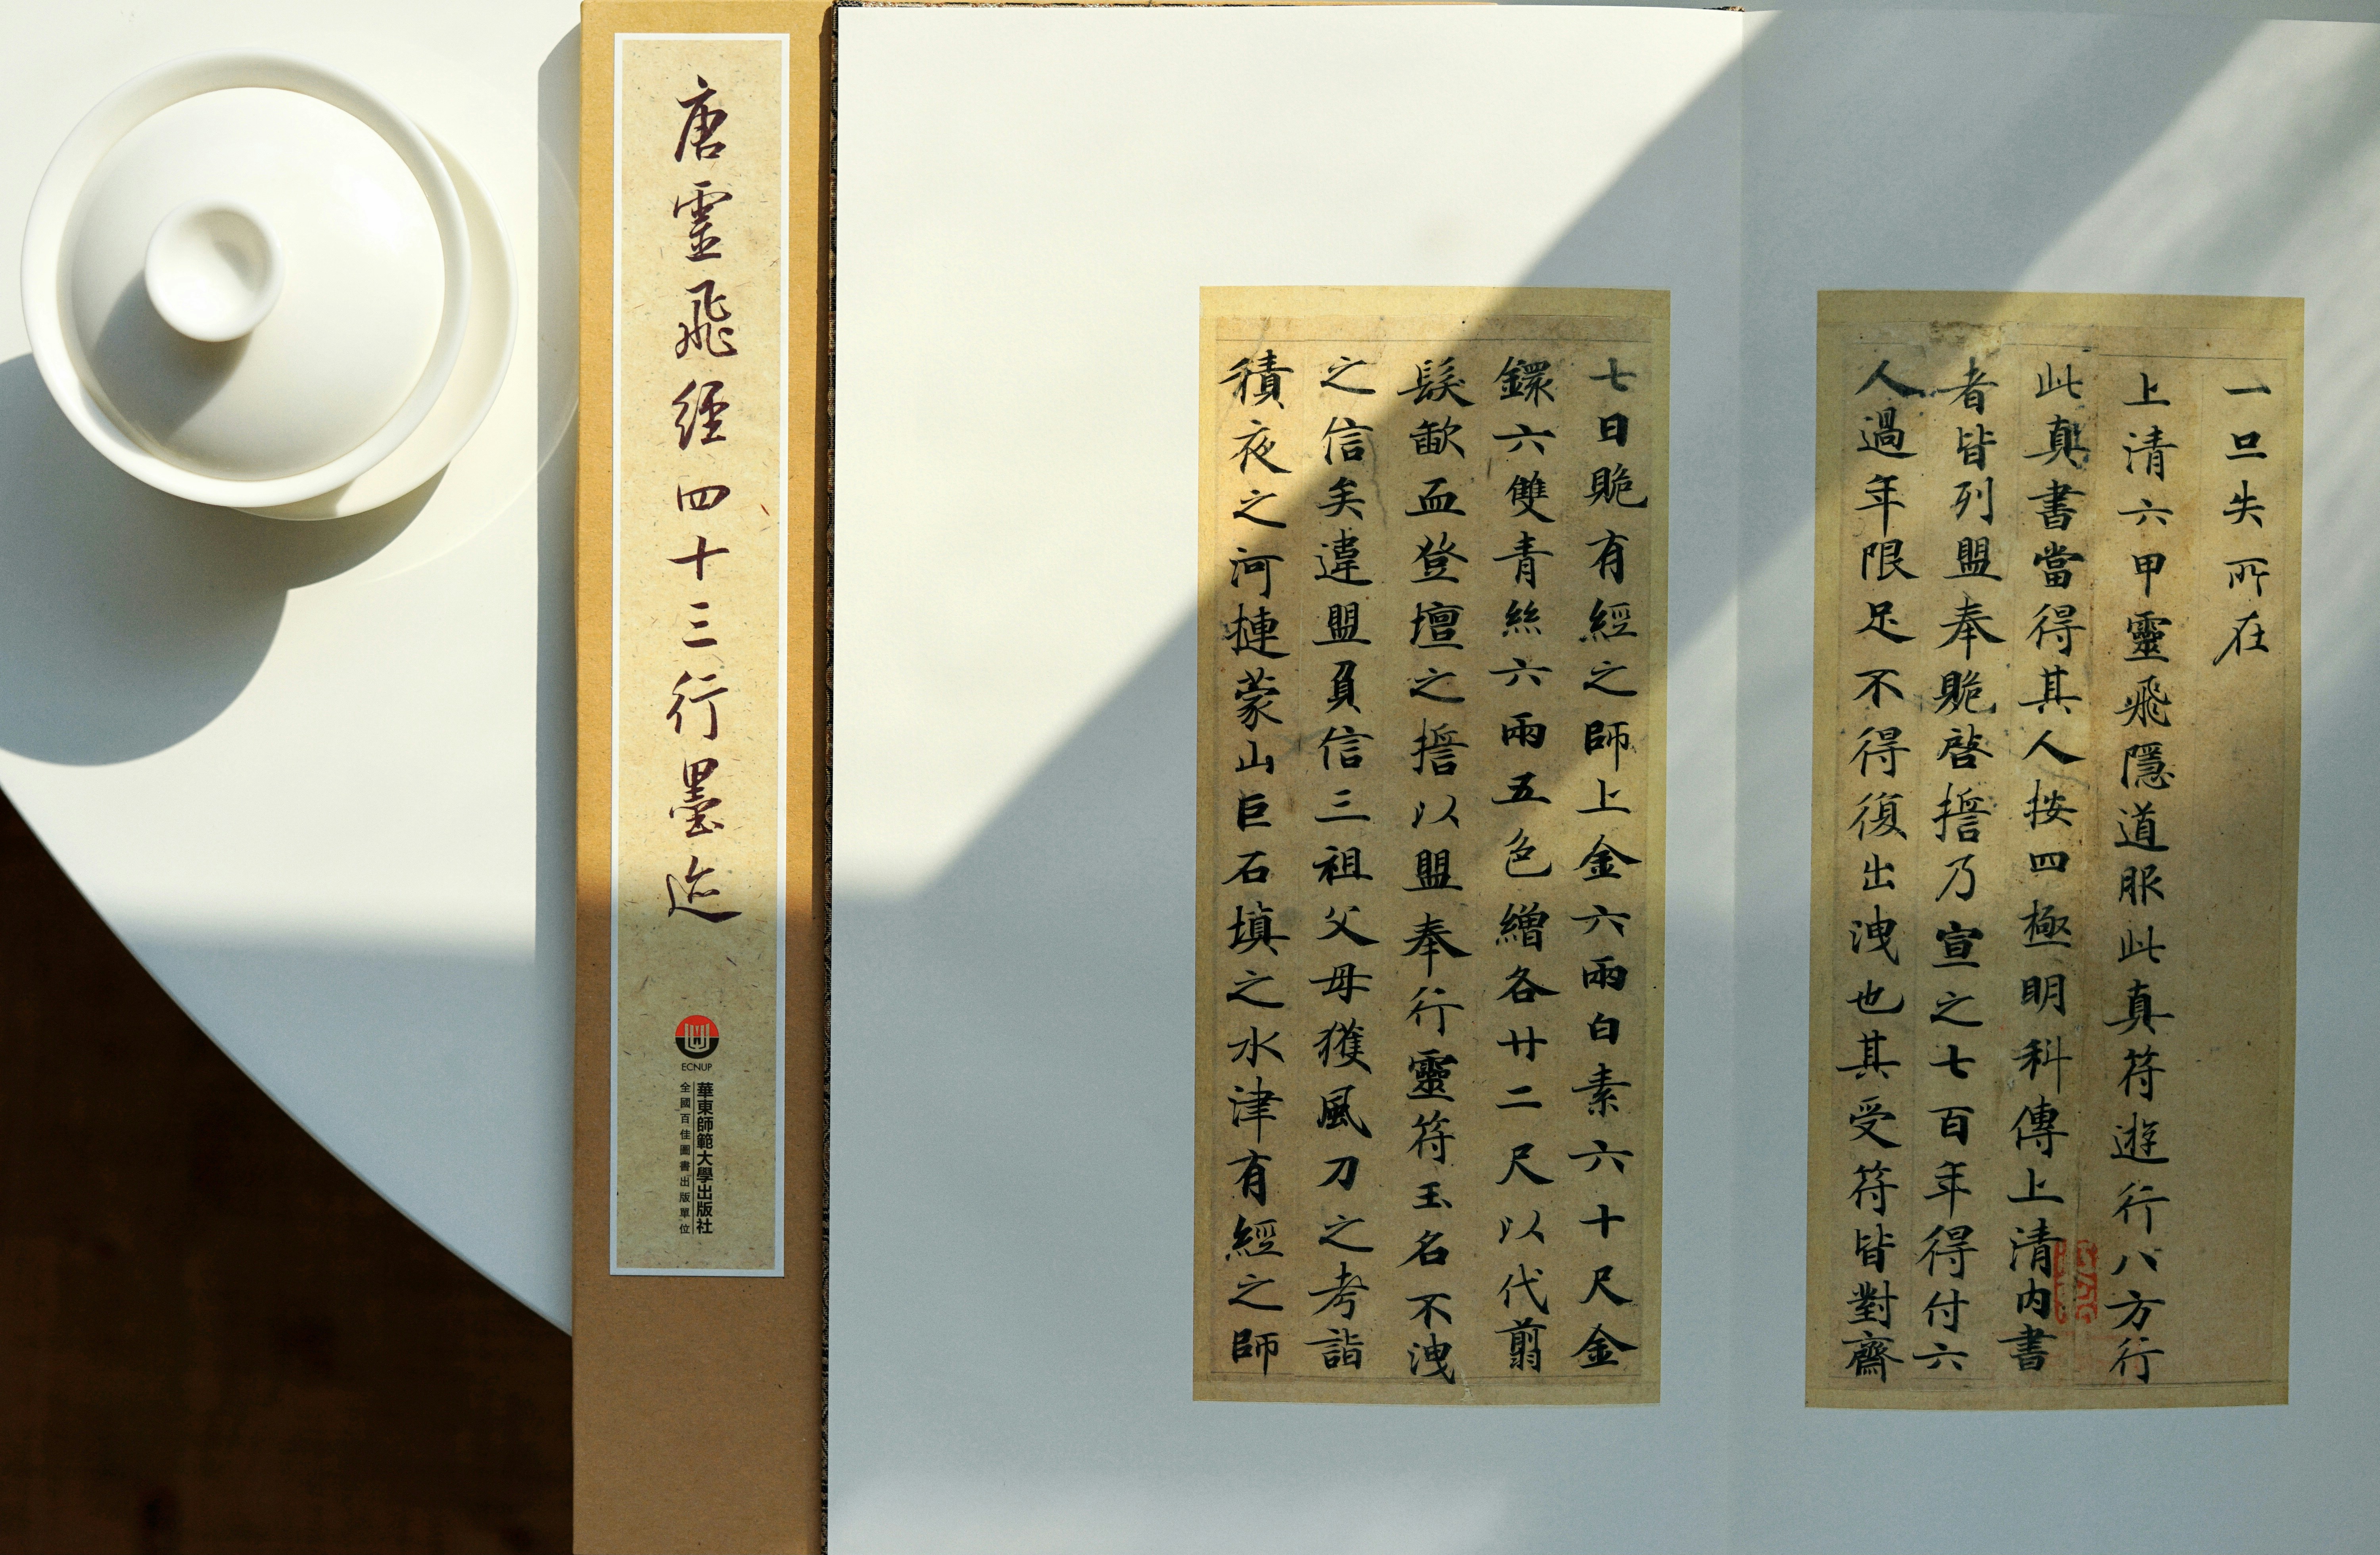 唐靈飛經四十三行墨迹
ECNUP
華東師範大學出版社
全國百佳圖書出版單位
一旦失所在
上清六甲靈飛隱道服此真符遊行八方行
此真書當得其人按四極明科傳上清內書
者皆列盟奉貤啓誓乃宣之七百年得付六
人過年限足不得復出洩也其受符皆對齋
七日貤有經之師上金六兩白素六十尺金
鐶六雙青絲六兩五色繒各廿二尺以代翦
髮歃血登壇之誓以盟奉行靈符玉名不洩
之信矣違盟負信三祖父母獲風刀之考詣
積夜之河摙蒙山巨石填之水津有經之師